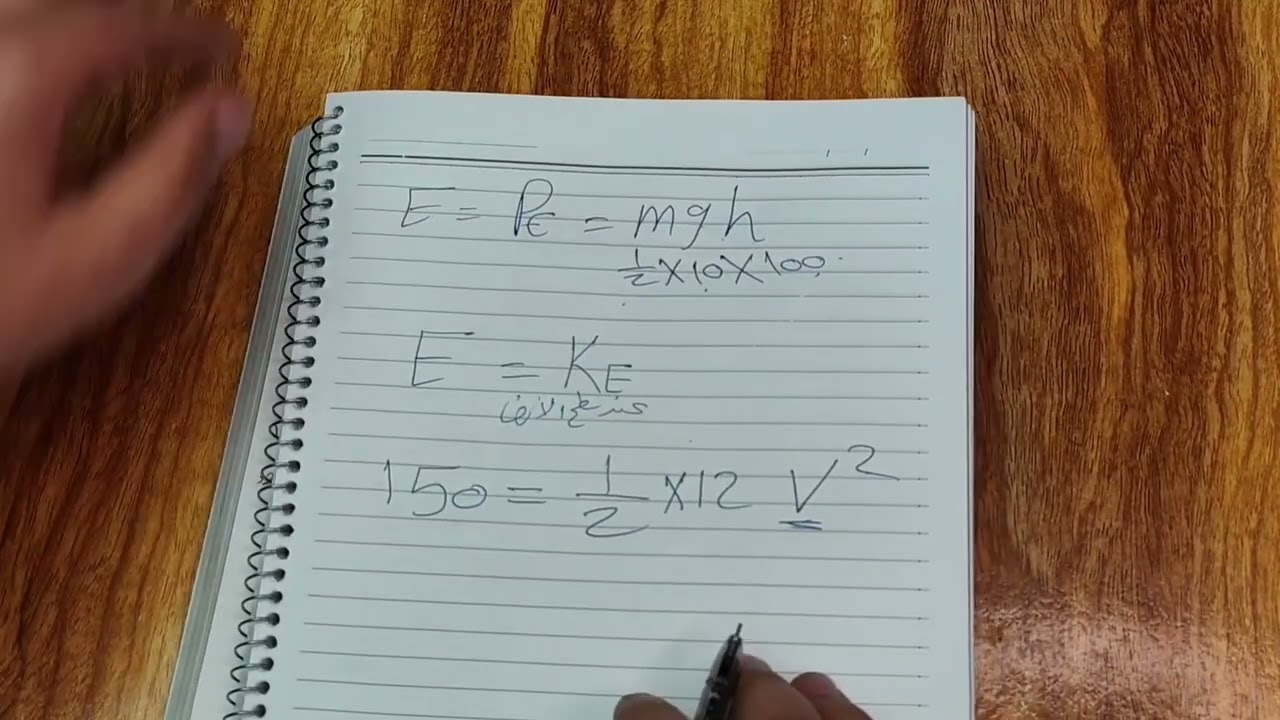 E = PE = mgh
1/2 X 10 X 100
E = KE
عند سطح الارض
150 = 1/2 X 12 V²